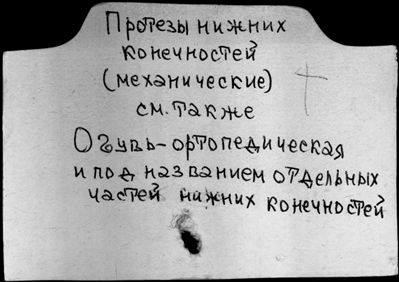 Протезы нижних
конечностей
(механические)
см. также
Обувь-ортопедическая
и под названием отдельных
частей нижних конечностей